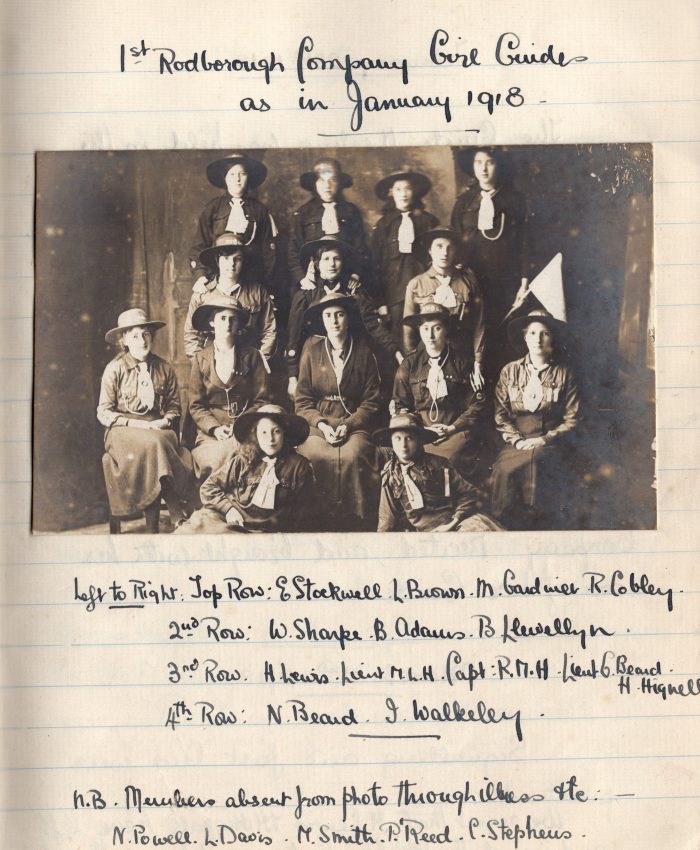 1st Rodborough Company Girl Guides
as in January 1918.
Left to Right. Top Row: E Stockwell. L. Brown. M. Gardiner R. Cobley.
2nd Row: W. Sharpe. B. Adams. B Llewellyn.
3rd Row. H Lewis. Lieut M.L.H. Capt: R.M.H. Lieut G. Beard.
H. Hignell
4th Row: N. Beard. I. Walkeley.
N.B. Members absent from photo through illness etc: —
N. Powell. L. Davis. M. Smith. P. Reed. C. Stephens.